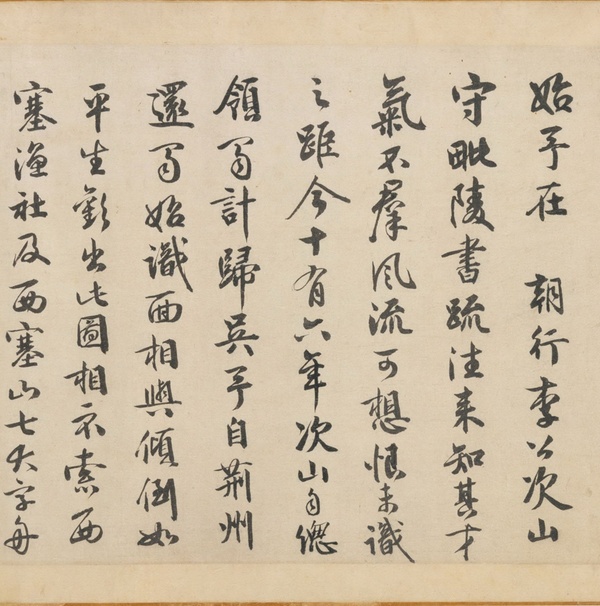 始予在 朝行李公次山
守毗陵書疏往来知其才
氣不羣風流可想恨未識
之距今十有六年次山自總
領蜀計歸吳予自荆州
還蜀始識面相與傾倒如
平生歡出此圖相示索西
塞漁社及西塞山七大字